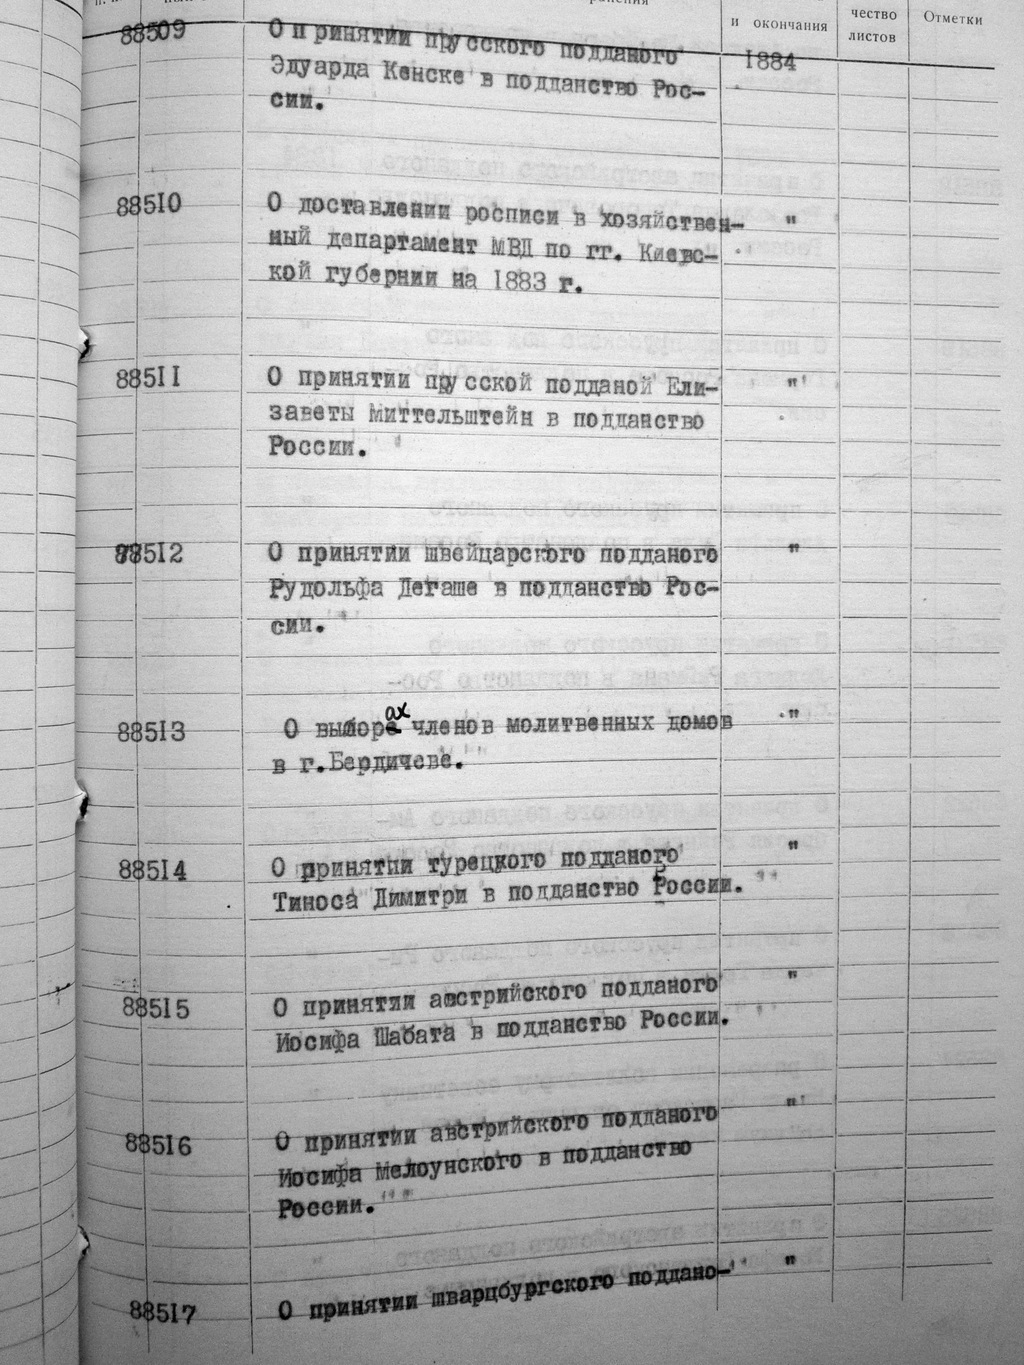 и окончания
чество
листов
Отметки
88509
О принятии прусского подданого
1884
Эдуарда Кенске в подданство Рос-
сии.
88510
О доставлении росписи в хозяйствен-
"
ный департамент МВД по гг. Киевс-
кой губернии на 1883 г.
88511
О принятии прусской подданой Ели-
"
заветы Миттельштейн в подданство
России.
88512
О принятии швейцарского подданого
"
Рудольфа Дегаше в подданство Рос-
сии.
88513
О выборах членов молитвенных домов
"
в г.Бердичеве.
88514
О принятии турецкого подданого
"
Тиноса Димитри в подданство России.
88515
О принятии австрийского подданого
"
Иосифа Шабата в подданство России.
88516
О принятии австрийского подданого
"
Иосифа Мелоунского в подданство
России.
88517
О принятии шварцбургского поддано-
"